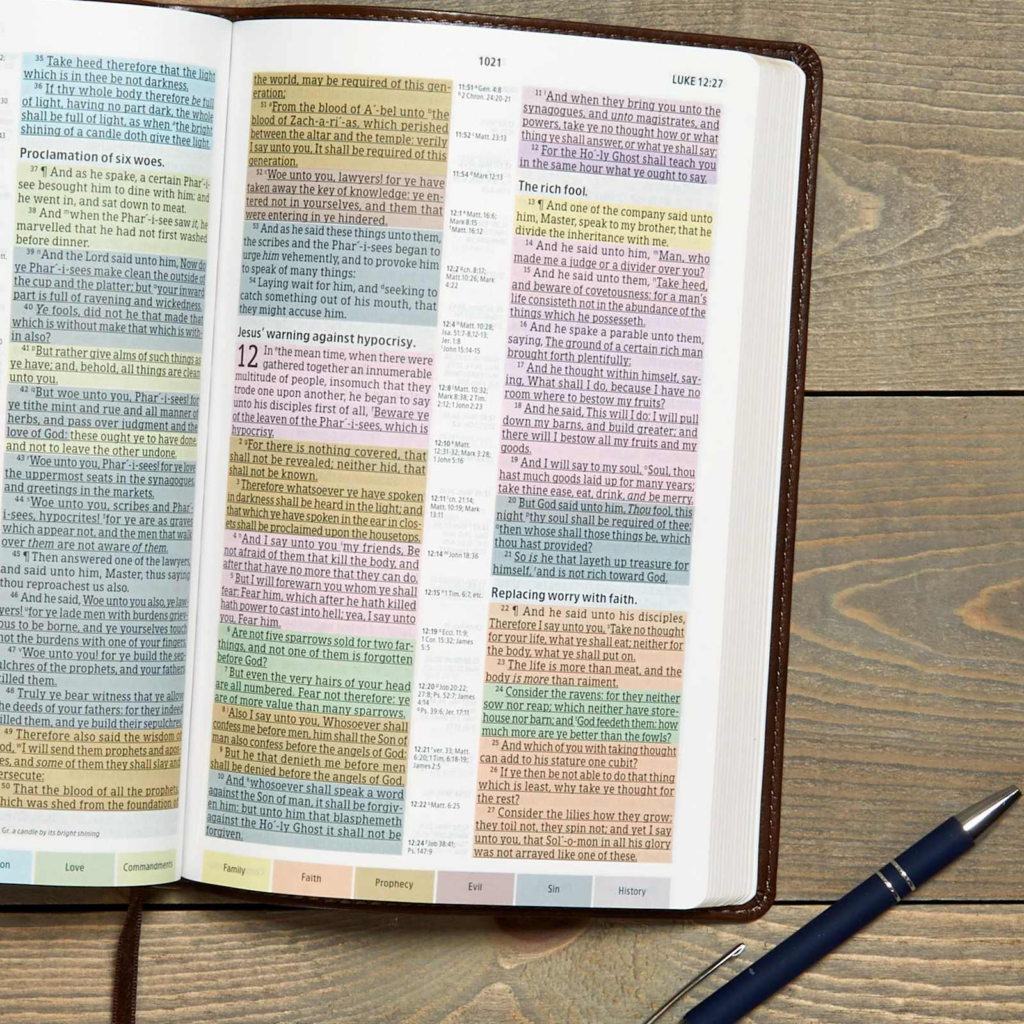 35 Take heed therefore that the light
which is in thee be not darkness.
36 If thy whole body therefore be full
of light, having no part dark, the whole
shall be full of light, as when the bright
shining of a candle doth give thee light.
Proclamation of six woes.
37 ¶ And as he spake, a certain Phar´-i-
see besought him to dine with him: and
he went in, and sat down to meat.
38 And when the Phar´-i-see saw it, he
marvelled that he had not first washed
before dinner.
39 And the Lord said unto him, Now do
ye Phar´-i-sees make clean the outside of
the cup and the platter; but your inward
part is full of ravening and wickedness.
40 Ye fools, did not he that made that
which is without make that which is with-
in also?
41 But rather give alms of such things as
ye have; and, behold, all things are clean
unto you.
42 But woe unto you, Phar´-i-sees! for
ye tithe mint and rue and all manner of
herbs, and pass over judgment and the
love of God: these ought ye to have done,
and not to leave the other undone.
43 Woe unto you, Phar´-i-sees! for ye love
the uppermost seats in the synagogues,
and greetings in the markets.
44 Woe unto you, scribes and Phar´-
i-sees, hypocrites! for ye are as graves
which appear not, and the men that walk
over them are not aware of them.
45 ¶ Then answered one of the lawyers,
and said unto him, Master, thus saying
thou reproachest us also.
46 And he said, Woe unto you also, ye law-
yers! for ye lade men with burdens griev-
ous to be borne, and ye yourselves touch
not the burdens with one of your fingers.
47 Woe unto you! for ye build the sep-
ulchres of the prophets, and your fathers
killed them.
48 Truly ye bear witness that ye allow
the deeds of your fathers: for they indeed
killed them, and ye build their sepulchres.
49 Therefore also said the wisdom of
God, I will send them prophets and apos-
tles, and some of them they shall slay and
persecute:
50 That the blood of all the prophets,
which was shed from the foundation of
Gr. a candle by its bright shining
on Love Commandments
1021
LUKE 12:27
the world, may be required of this gen-
eration;
51 From the blood of A´-bel unto the
blood of Zach-a-ri´-as, which perished
between the altar and the temple: verily
I say unto you, It shall be required of this
generation.
52 Woe unto you, lawyers! for ye have
taken away the key of knowledge: ye en-
tered not in yourselves, and them that
were entering in ye hindered.
53 And as he said these things unto them,
the scribes and the Phar´-i-sees began to
urge him vehemently, and to provoke him
to speak of many things:
54 Laying wait for him, and seeking to
catch something out of his mouth, that
they might accuse him.
Jesus' warning against hypocrisy.
12 In the mean time, when there were
gathered together an innumerable
multitude of people, insomuch that they
trode one upon another, he began to say
unto his disciples first of all, Beware ye
of the leaven of the Phar´-i-sees, which is
hypocrisy.
2 For there is nothing covered, that
shall not be revealed; neither hid, that
shall not be known.
3 Therefore whatsoever ye have spoken
in darkness shall be heard in the light; and
that which ye have spoken in the ear in clos-
ets shall be proclaimed upon the housetops.
4 And I say unto you my friends, Be
not afraid of them that kill the body, and
after that have no more that they can do.
5 But I will forewarn you whom ye shall
fear: Fear him, which after he hath killed
hath power to cast into hell; yea, I say unto
you, Fear him.
6 Are not five sparrows sold for two far-
things, and not one of them is forgotten
before God?
7 But even the very hairs of your head
are all numbered. Fear not therefore: ye
are of more value than many sparrows.
8 Also I say unto you, Whosoever shall
confess me before men, him shall the Son of
man also confess before the angels of God:
9 But he that denieth me before men
shall be denied before the angels of God.
10 And whosoever shall speak a word
against the Son of man, it shall be forgiv-
en him: but unto him that blasphemeth
against the Ho´-ly Ghost it shall not be
forgiven.
11:51 Gen. 4:8
2 Chron. 24:20-21
11:52 Matt. 23:13
11:54 Mark 12:13
12:1 Matt. 16:6;
Mark 8:15
Matt. 16:12
12:2 ch. 8:17;
Matt. 10:26; Mark
4:22
12:4 Matt. 10:28;
Isa. 51:7-8,12-13;
Jer. 1:8
John 15:14-15
12:8 Matt. 10:32;
Mark 8:38; 2 Tim.
2:12; 1 John 2:23
12:10 Matt.
12:31-32; Mark 3:28;
1 John 5:16
12:11 ch. 21:14;
Matt. 10:19; Mark
13:11
12:14 John 18:36
12:15 1 Tim. 6:7, etc.
12:19 Eccl. 11:9;
1 Cor. 15:32; James
5:5
12:20 Job 20:22;
27:8; Ps. 52:7; James
4:14
Ps. 39:6; Jer. 17:11
12:21 ver. 33; Matt.
6:20; 1 Tim. 6:18-19;
James 2:5
12:22 Matt. 6:25
12:24 Job 38:41;
Ps. 147:9
11 And when they bring you unto the
synagogues, and unto magistrates, and
powers, take ye no thought how or what
thing ye shall answer, or what ye shall say:
12 For the Ho´-ly Ghost shall teach you
in the same hour what ye ought to say.
The rich fool.
13 ¶ And one of the company said unto
him, Master, speak to my brother, that he
divide the inheritance with me.
14 And he said unto him, Man, who
made me a judge or a divider over you?
15 And he said unto them, Take heed,
and beware of covetousness: for a man's
life consisteth not in the abundance of the
things which he possesseth.
16 And he spake a parable unto them,
saying, The ground of a certain rich man
brought forth plentifully:
17 And he thought within himself, say-
ing, What shall I do, because I have no
room where to bestow my fruits?
18 And he said, This will I do: I will pull
down my barns, and build greater; and
there will I bestow all my fruits and my
goods.
19 And I will say to my soul, Soul, thou
hast much goods laid up for many years;
take thine ease, eat, drink, and be merry.
20 But God said unto him, Thou fool, this
night thy soul shall be required of thee:
then whose shall those things be, which
thou hast provided?
21 So is he that layeth up treasure for
himself, and is not rich toward God.
Replacing worry with faith.
22 ¶ And he said unto his disciples,
Therefore I say unto you, Take no thought
for your life, what ye shall eat; neither for
the body, what ye shall put on.
23 The life is more than meat, and the
body is more than raiment.
24 Consider the ravens: for they neither
sow nor reap; which neither have store-
house nor barn; and God feedeth them: how
much more are ye better than the fowls?
25 And which of you with taking thought
can add to his stature one cubit?
26 If ye then be not able to do that thing
which is least, why take ye thought for
the rest?
27 Consider the lilies how they grow:
they toil not, they spin not; and yet I say
unto you, that Sol´-o-mon in all his glory
was not arrayed like one of these.
Family Faith Prophecy Evil Sin History